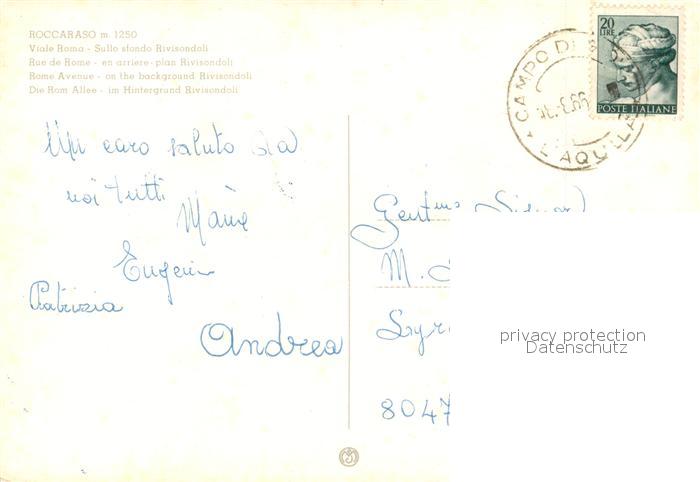 ROCCARASO m. 1250
Viale Roma - Sullo sfondo Rivisondoli
Rue de Rome - en arriere-plan Rivisondoli
Rome Avenue - on the background Rivisondoli
Die Rom Allee - im Hintergrund Rivisondoli
CAMPO DI
L'AQUILA
20
LIRE
POSTE ITALIANE
Un caro saluto da
noi tutti
Eugenio
Patrizia
Andrea
M.
8047
privacy protection
Datenschutz